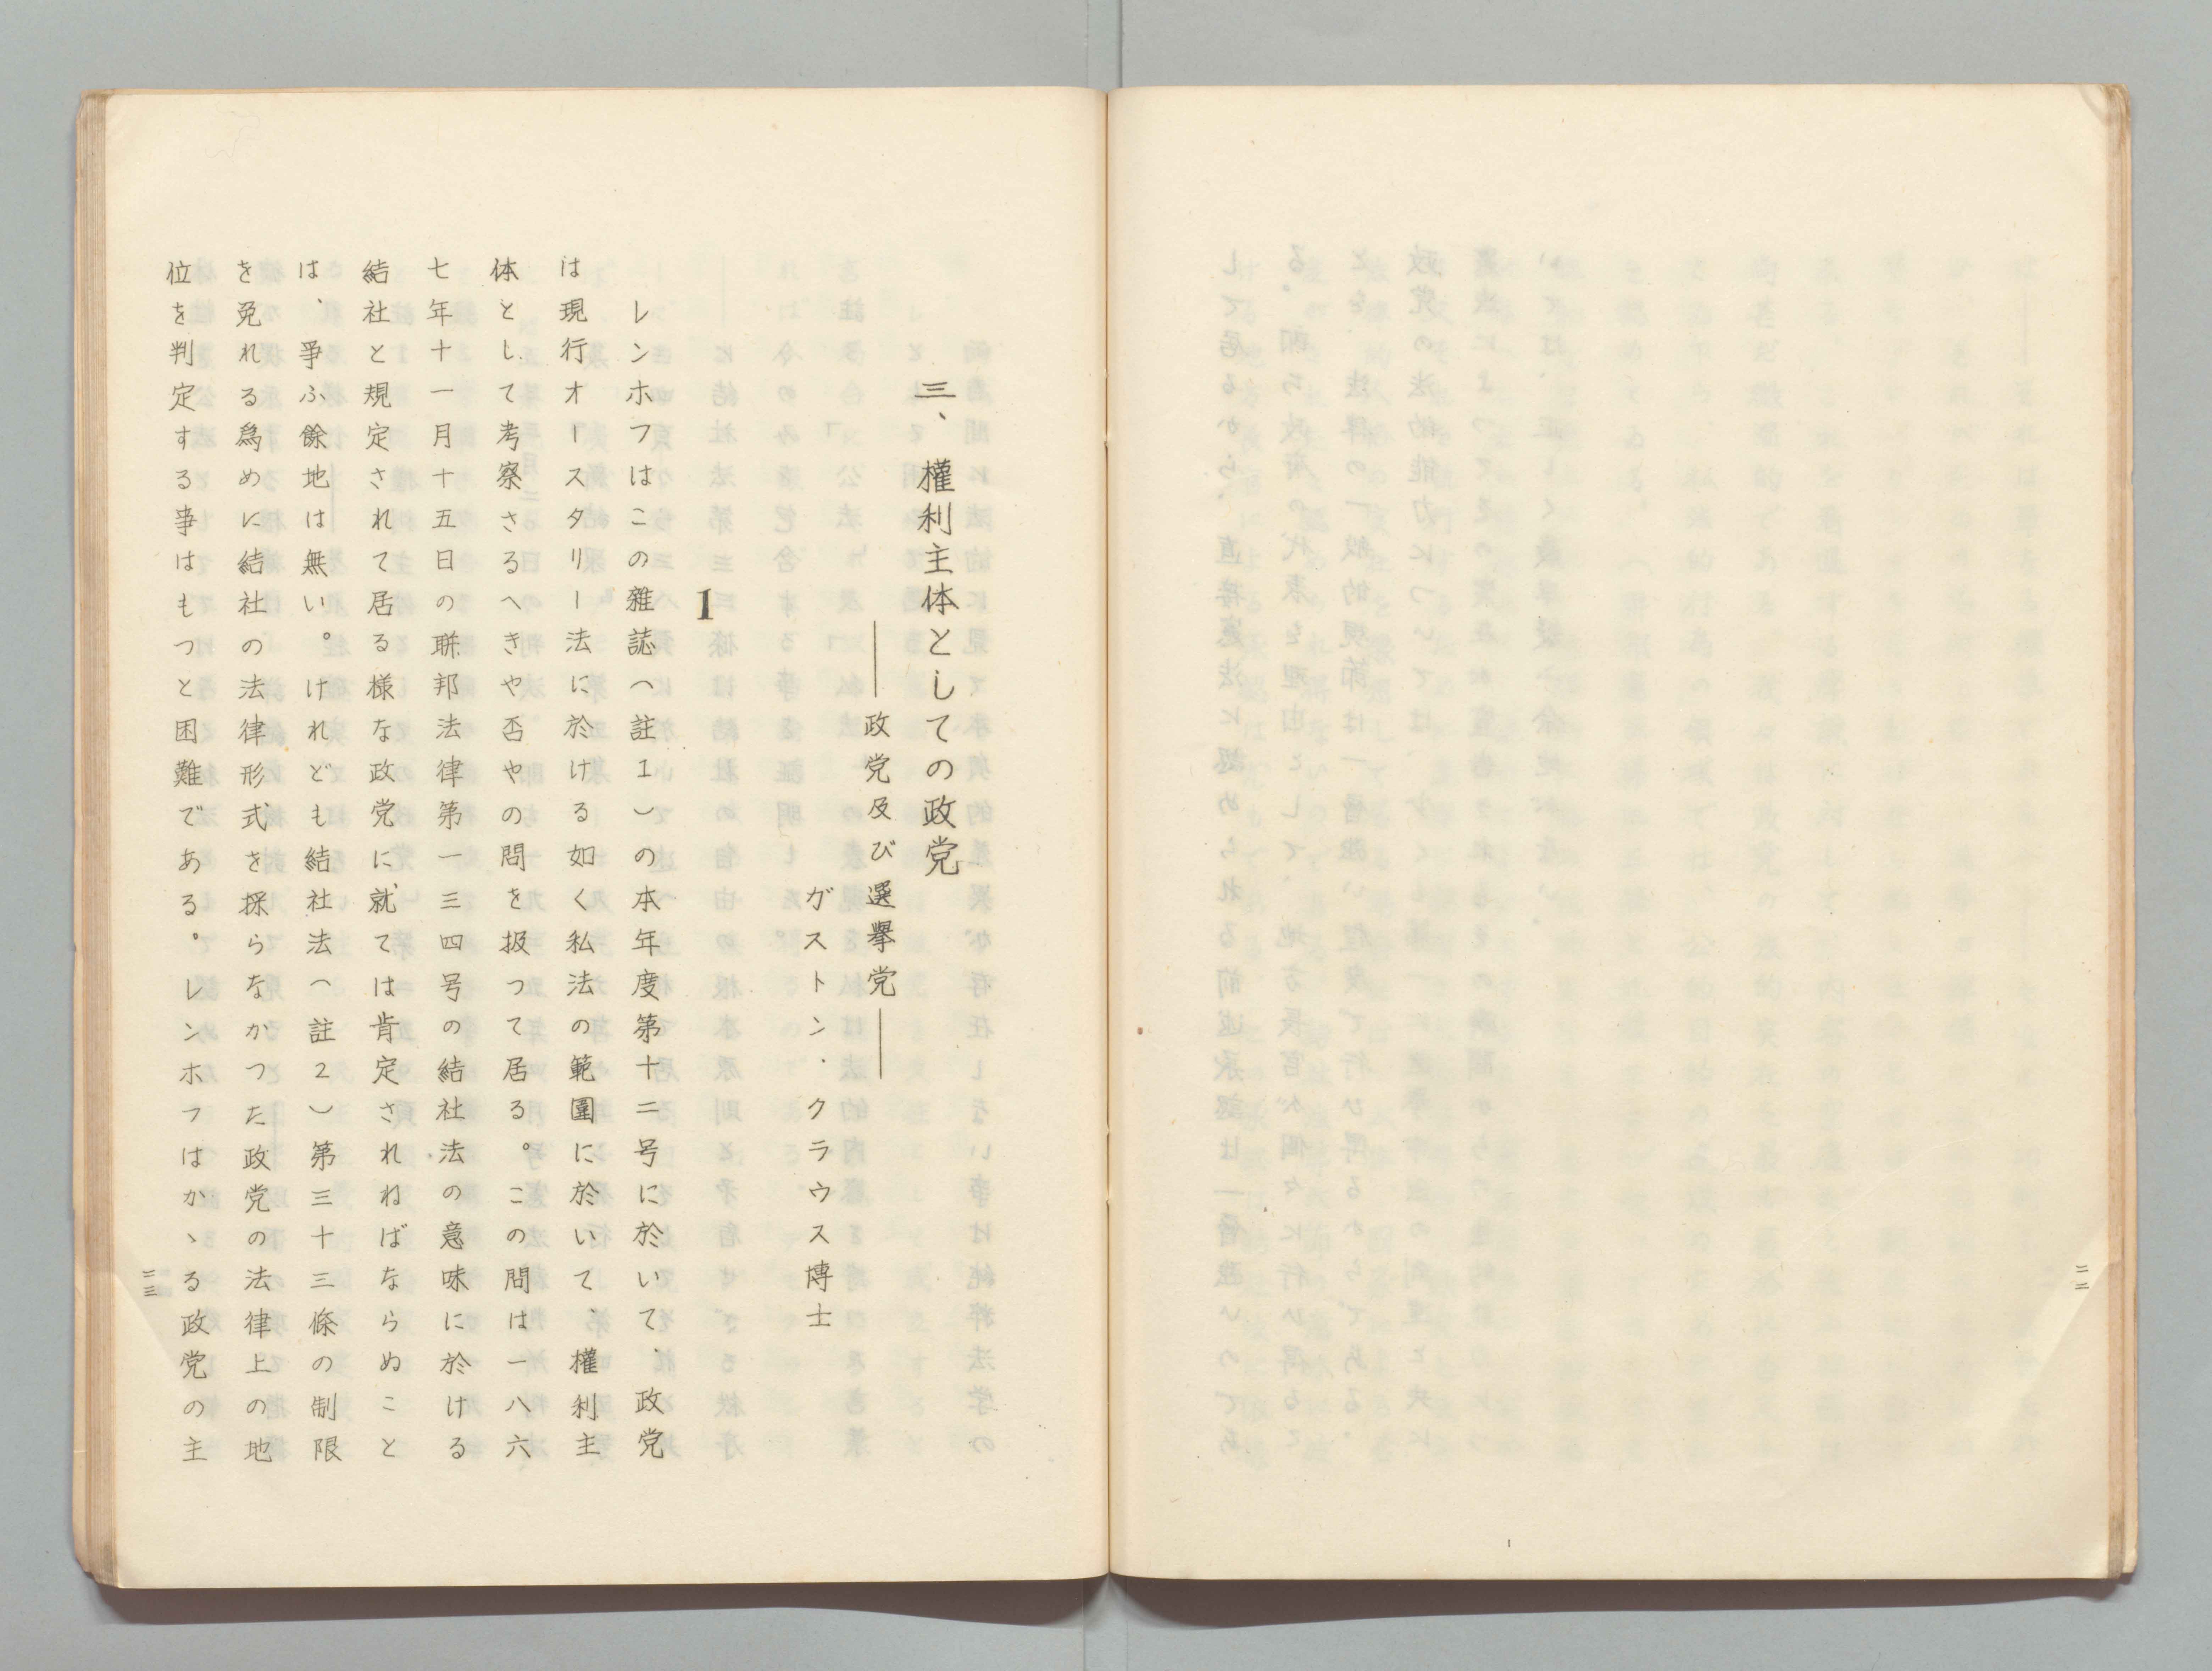 二二
三、權利主体としての政党
――政党及び選擧党――
ガストン・クラウス博士
1
レンホフはこの雜誌（註１）の本年度第十二号に於いて、政党
は現行オースタリー法に於ける如く私法の範圍に於いて、權利主
体として考察さるへきや否やの問を扱つて居る。この問は一八六
七年十一月十五日の聯邦法律第一三四号の結社法の意味に於ける
結社と規定されて居る様な政党に就ては肯定されねばならぬこと
は、爭ふ餘地は無い。けれども結社法（註２）第三十三條の制限
を免れる爲めに結社の法律形式を採らなかつた政党の法律上の地
位を判定する事はもつと困難である。レンホフはかゝる政党の主
二三